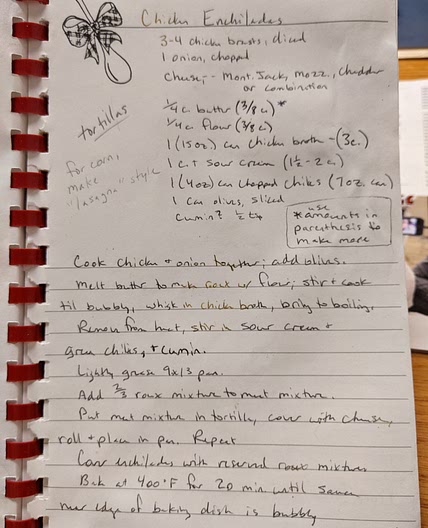 Chicken Enchiladas
3-4 chicken breasts, diced
1 onion, chopped
Cheese, -- Mont. Jack, Mozz., Cheddar
or combination
1/4 c. butter (3/8 c.) *
1/4 c. flour (3/8 c.)
1 (15 oz) can chicken broth - (3c.)
1 c. + sour cream (1 1/2 - 2 c.)
1 (4 oz) can chopped chiles (7 oz. can)
1 can olives, sliced
cumin? 1/2 tsp
tortillas
for corn,
make
"lasagna" style
use
* amounts in
parenthesis to
make more
Cook chicken + onion together; add olives.
Melt butter to make roux w/ flour; stir + cook
til bubbly, whisk in chicken broth, bring to boiling,
Remove from heat, stir in sour cream +
green chilies, + cumin.
Lightly grease 9x13 pan.
Add 2/3 roux mixture to meat mixture.
Put meat mixture in tortilla, cover with cheese,
roll + place in pan. Repeat
Cover enchiladas with reserved roux mixture
Bake at 400°F for 20 min until sauce
near edge of baking dish is bubbly